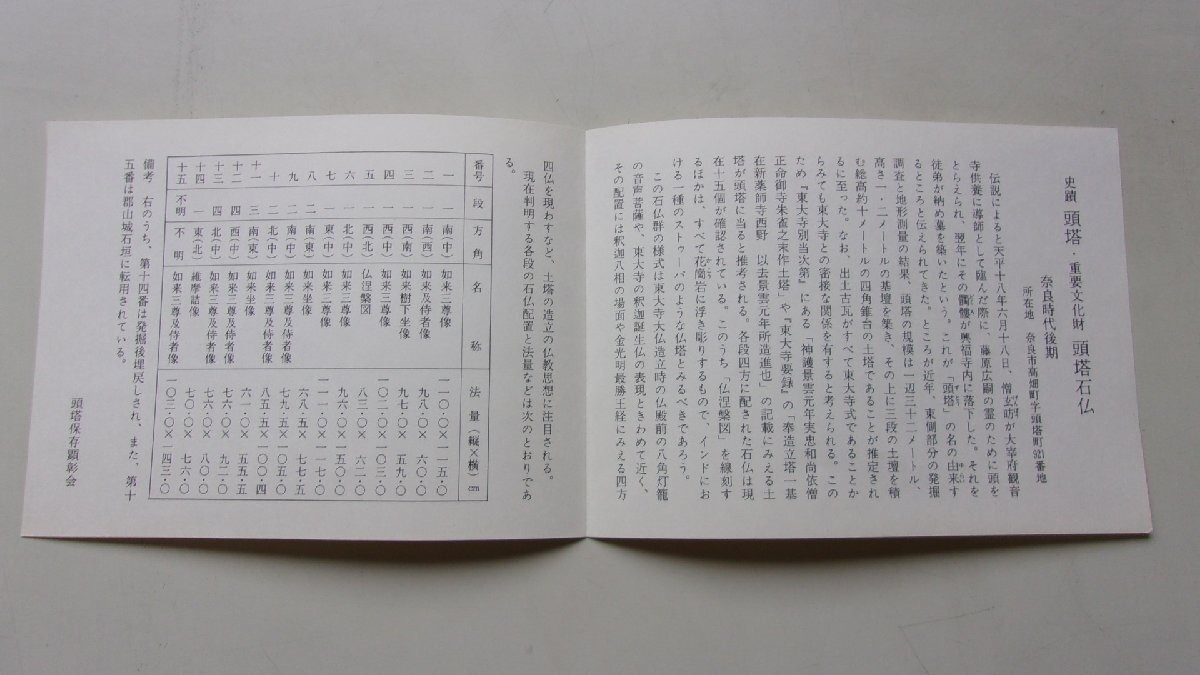 史蹟　頭塔・重要文化財　頭塔石仏
奈良時代後期
所在地　奈良市高畑町字頭塔町921番地
伝説によると天平十八年六月十八日、僧玄昉が大宰府観音
寺供養に導師として臨んだ際に、藤原広嗣の霊のために頭を
とらえられ、翌年にその髑髏が興福寺内に落下した。それを
徒弟が納め墓を築いたという。これが「頭塔」の名の由来す
るところと伝えられてきた。ところが近年、東側部分の発掘
調査と地形測量の結果、頭塔の規模は一辺三十二メートル、
高さ一・二メートルの基壇を築き、その上に三段の土壇を積
む総高約十メートルの四角錐台の土塔であることが推定され
るに至った。なお、出土古瓦がすべて東大寺式であることか
らみても東大寺との密接な関係を有すると考えられる。この
ため『東大寺別当次第』にある「神護景雲元年実忠和尚依僧
正命御寺朱雀之末作土塔」や『東大寺要録』の「奉造立塔一基
在新薬師寺西野　以去景雲元年所造進也」の記載にみえる土
塔が頭塔に当ると推考される。各段四方に配された石仏は現
在十五個が確認されている。このうち「仏涅槃図」を線刻す
るほかは、すべて花崗岩に浮き彫りするもので、インドにお
ける一種のストゥーパのような仏塔とみるべきであろう。
この石仏群の様式は東大寺大仏造立時の仏殿前の八角灯籠
の音声菩薩や、東大寺の釈迦誕生仏の表現ときわめて近く、
その配置には釈迦八相の場面や金光明最勝王経にみえる四方
四仏を現わすなど、土塔の造立の仏教思想に注目される。
現在判明する各段の石仏配置と法量などは次のとおりであ
る。
番号　段　方角　名称　法量（縦×横）cm
一　一　南（中）　如来三尊像　一一〇・〇×一一五・〇
二　一　南（西）　如来及侍者像　九八・〇×六〇・〇
三　一　西（南）　如来樹下坐像　九七・〇×五九・〇
四　一　西（中）　如来三尊像　一〇〇・〇×一〇二・〇
五　一　西（北）　仏涅槃図　八二・〇×六二・〇
六　一　北（中）　如来三尊像　九六・〇×一二〇・〇
七　一　東（中）　如来二尊像　一一一・〇×一一七・〇
八　二　南（東）　如来坐像
九　二　南（中）　如来三尊及侍者像
十　二　北（中）　如来三尊及侍者像
十一　三　南（東）　如来坐像
十二　四　西（中）　如来三尊及侍者像
十三　四　北（中）　如来三尊及侍者像
十四　一　東（北）　維摩詰像　七六・〇×八〇・〇
十五　不明　不明　如来三尊及侍者像　一〇三・〇×一四三・〇
備考　右のうち、第十四番は発掘後埋戻しされ、また、第十
五番は郡山城石垣に転用されている。
頭塔保存顕彰会